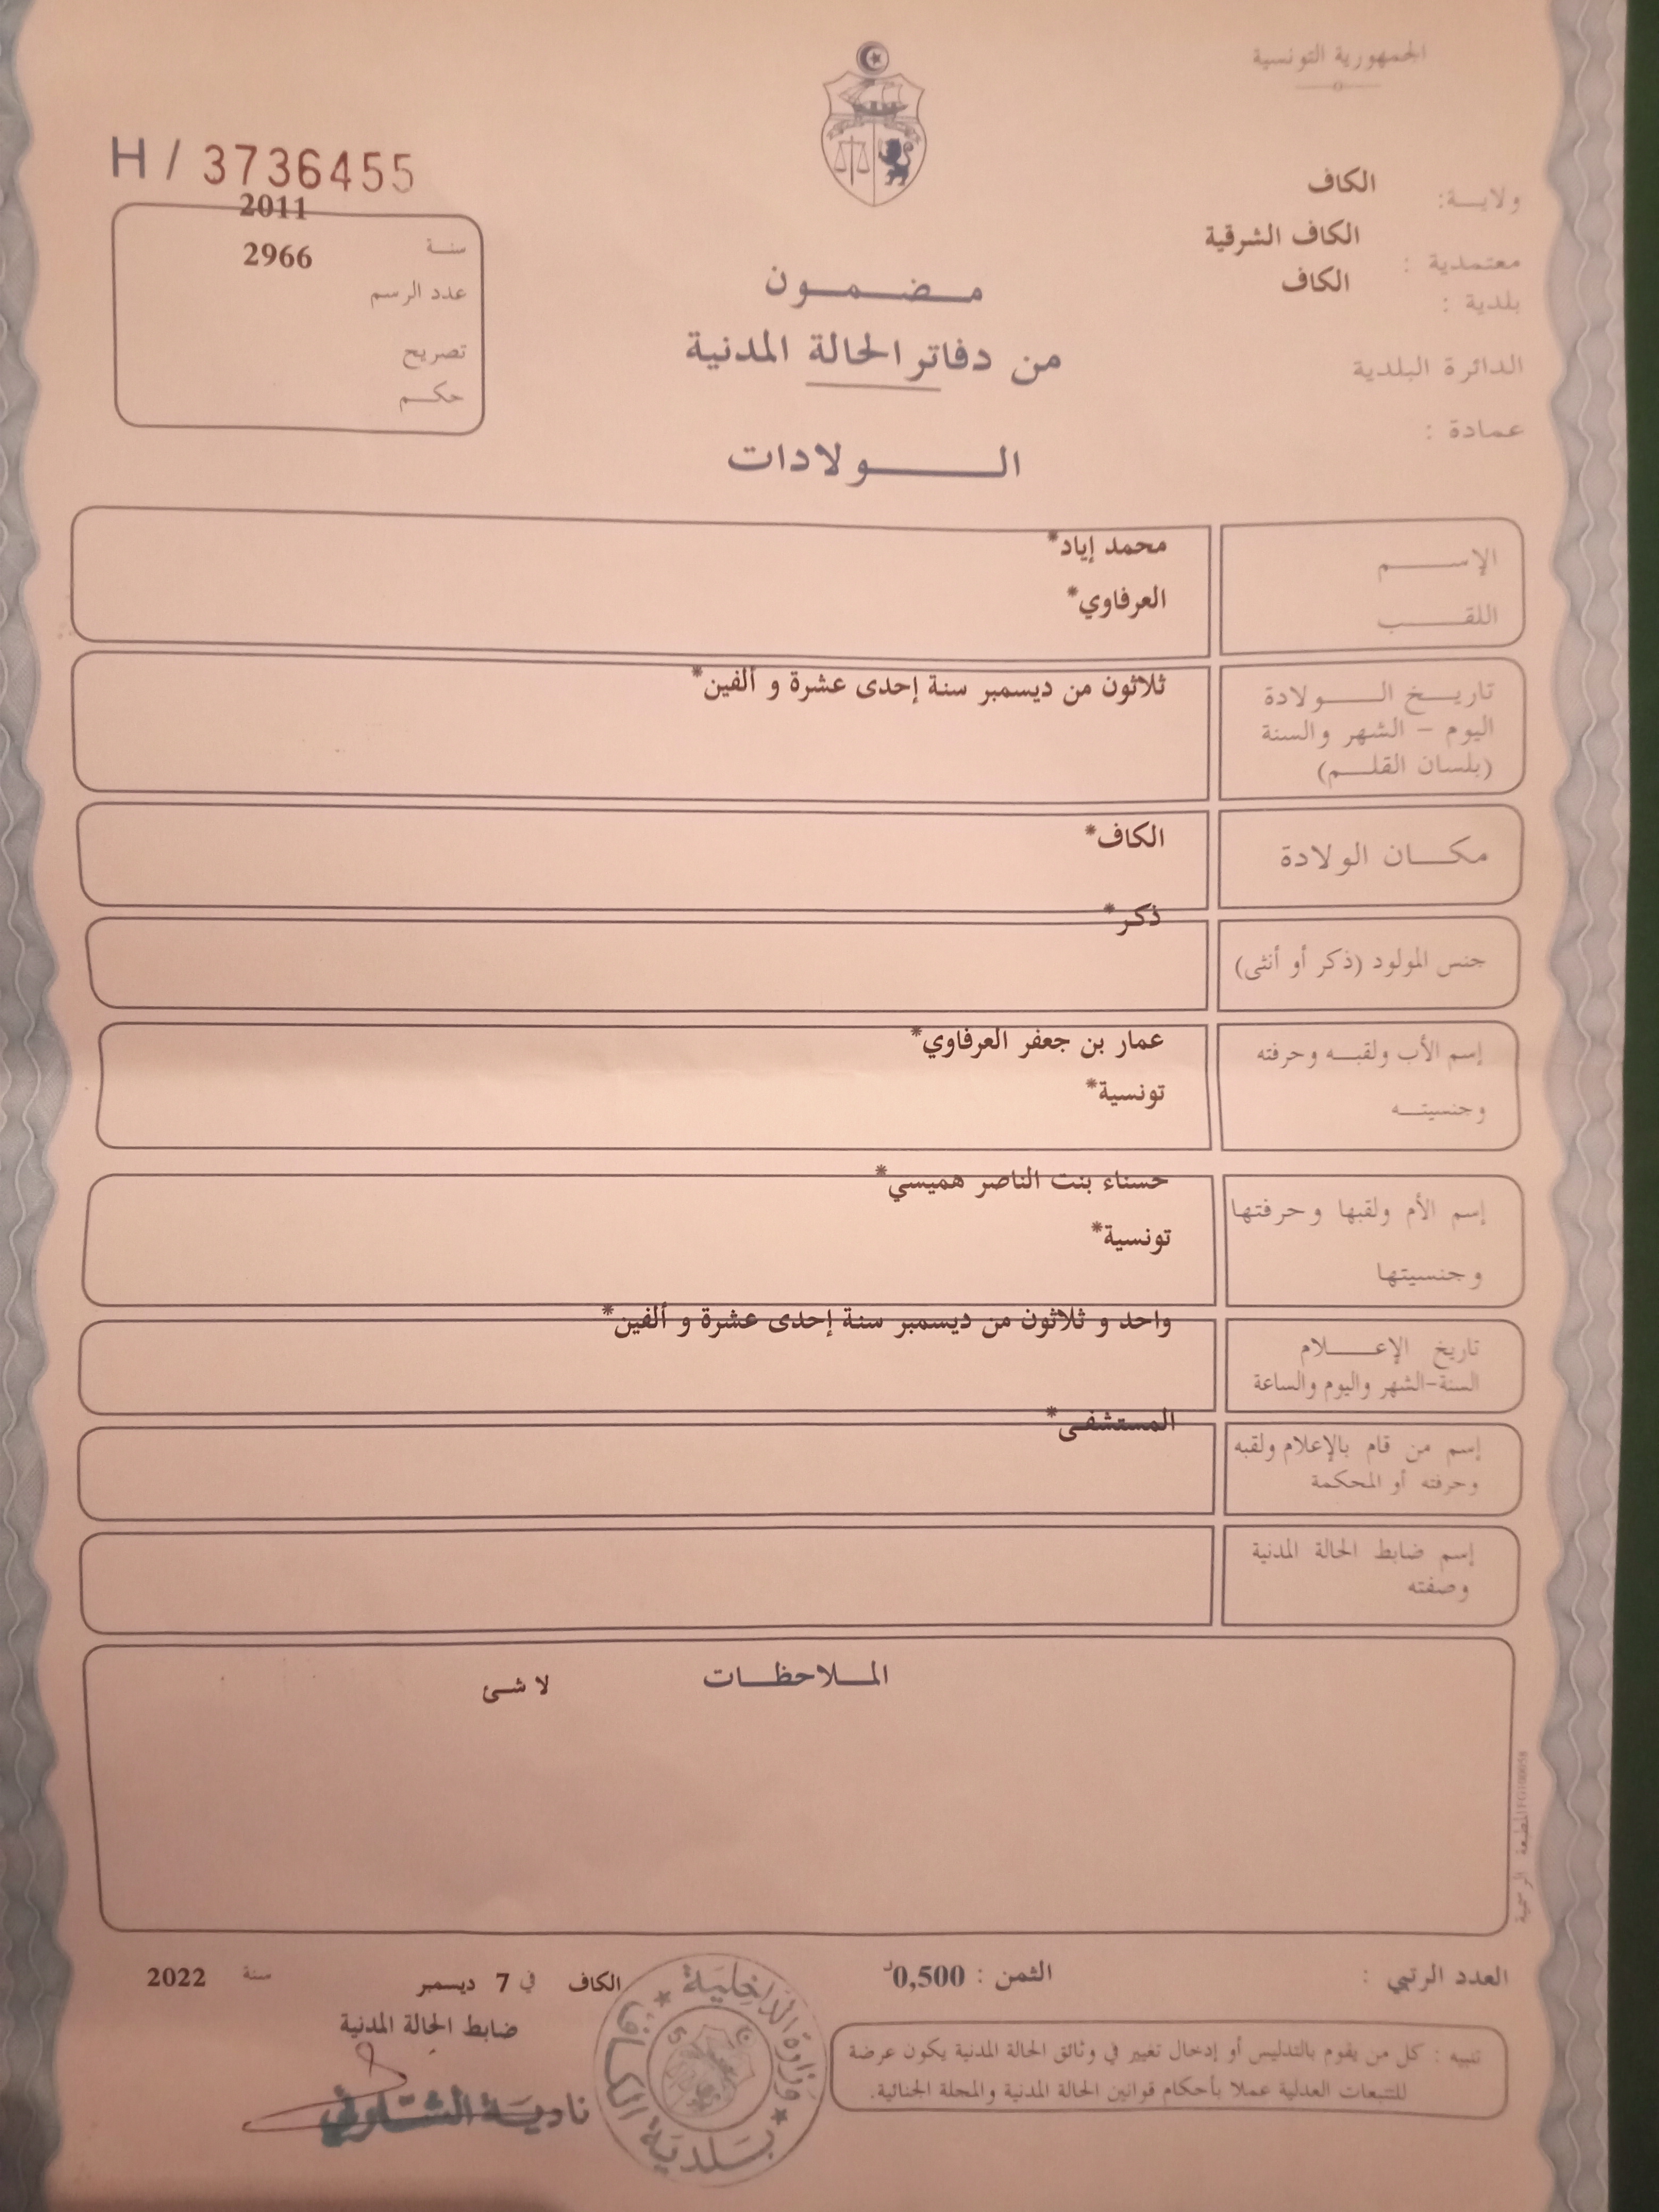 الجمهورية التونسية
ولايـــة: الكاف
معتمدية : الكاف الشرقية
بلدية : الكاف
الدائرة البلدية
عمادة :
H / 3736455
سنـــة 2011
عدد الرسم 2966
تصريح
حكـــم
مـــضـــمـــون
من دفاتر الحالة المدنية
الـــــولادات
الإســـــم محمد إياد*
اللقـــــب العرفاوي*
تاريـــخ الـــــولادة ثلاثون من ديسمبر سنة إحدى عشرة و ألفين*
اليوم - الشهر والسنة
(بلسان القلـــم)
مكـــان الولادة الكاف*
جنس المولود (ذكر أو أنثى) ذكر*
إسم الأب ولقبـــه وحرفته عمار بن جعفر العرفاوي*
وجنسيتـــه تونسية*
إسم الأم ولقبها وحرفتها حسناء بنت الناصر هميسي*
وجنسيتها تونسية*
تاريخ الإعـــــلام واحد و ثلاثون من ديسمبر سنة إحدى عشرة و ألفين*
السنة-الشهر واليوم والساعة
إسم من قام بالإعلام ولقبه المستشفى*
وحرفته أو المحكمة
إسم ضابط الحالة المدنية
وصفته
الملاحظـــات
لا شئ
العدد الرتبي :
الثمن : 0,500د
الكاف في 7 ديسمبر سنة 2022
ضابط الحالة المدنية
تنبيه : كل من يقوم بالتدليس أو إدخال تغيير في وثائق الحالة المدنية يكون عرضة
للتتبعات العدلية عملا بأحكام قوانين الحالة المدنية والمجلة الجنائية.
وزارة الداخلية
بلدية الكاف
5
المطبعة الرسمية